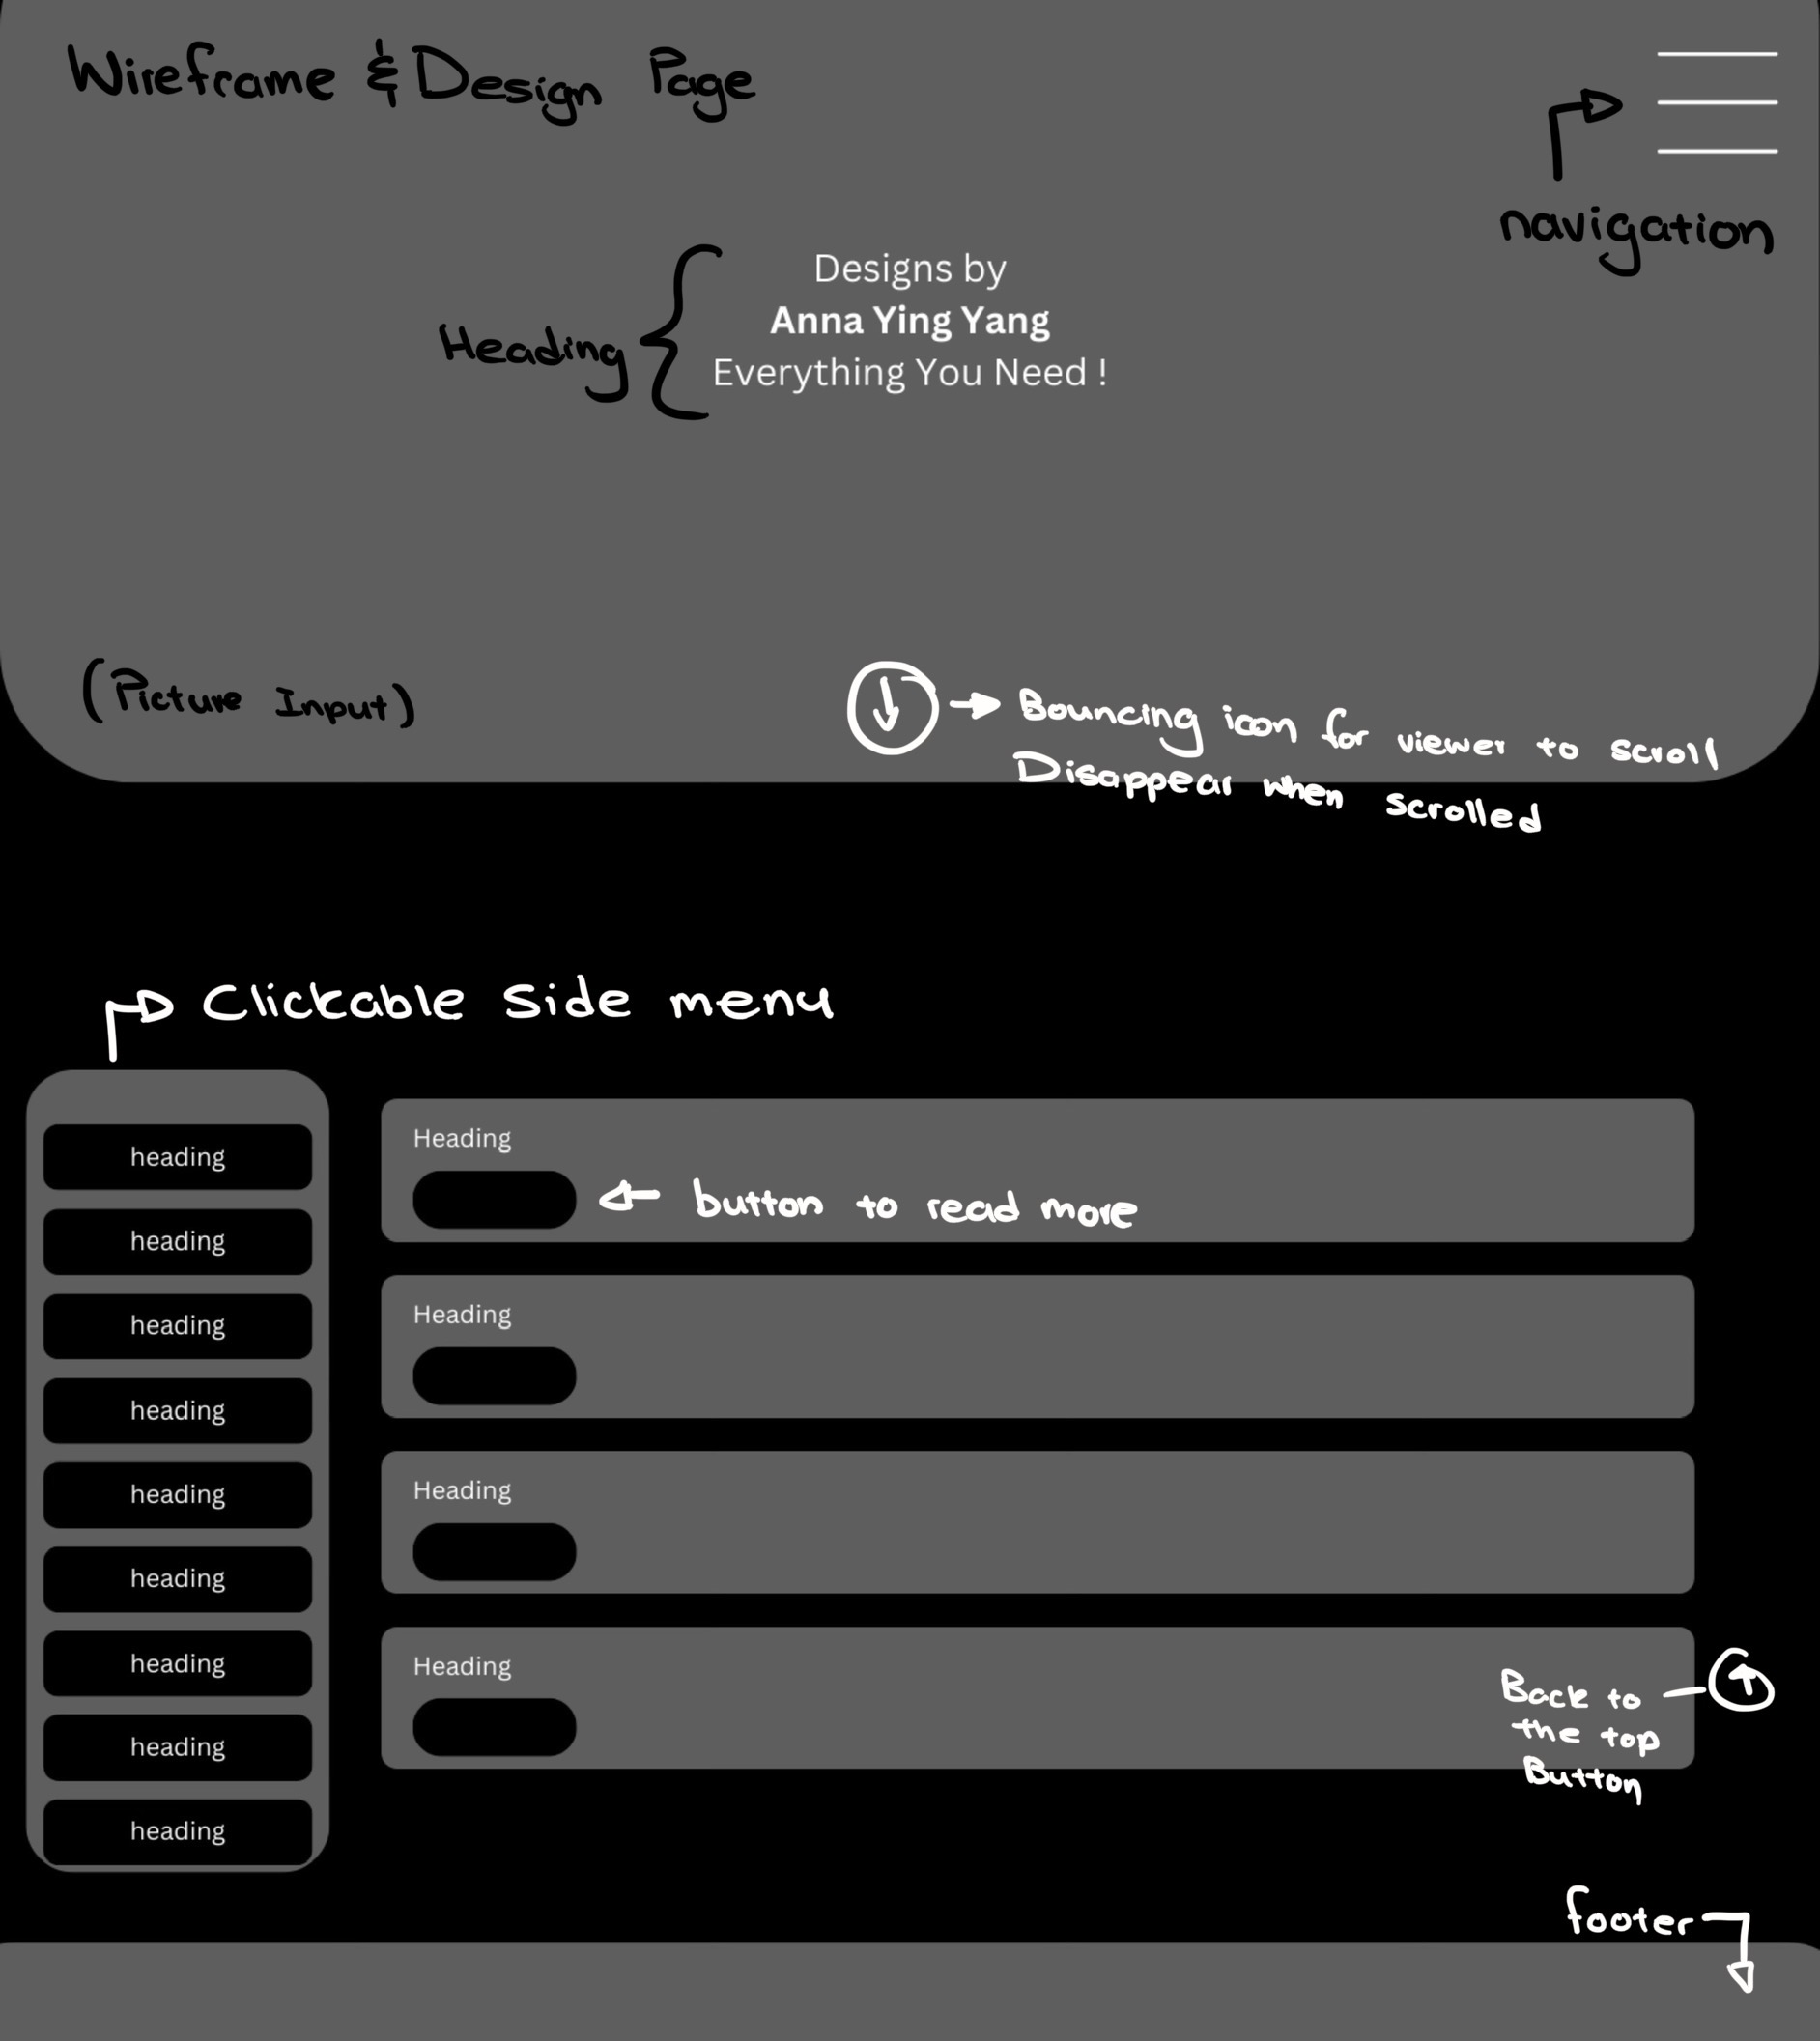 Wireframe & Design Page
navigation
Designs by
Anna Ying Yang
Everything You Need !
Heading
(Picture Input)
Bouncing icon for viewer to scroll
Disappear when scrolled
Clickable side menu
heading
heading
heading
heading
heading
heading
heading
heading
heading
Heading
button to read more
Heading
Heading
Heading
Back to
the top
Button
footer